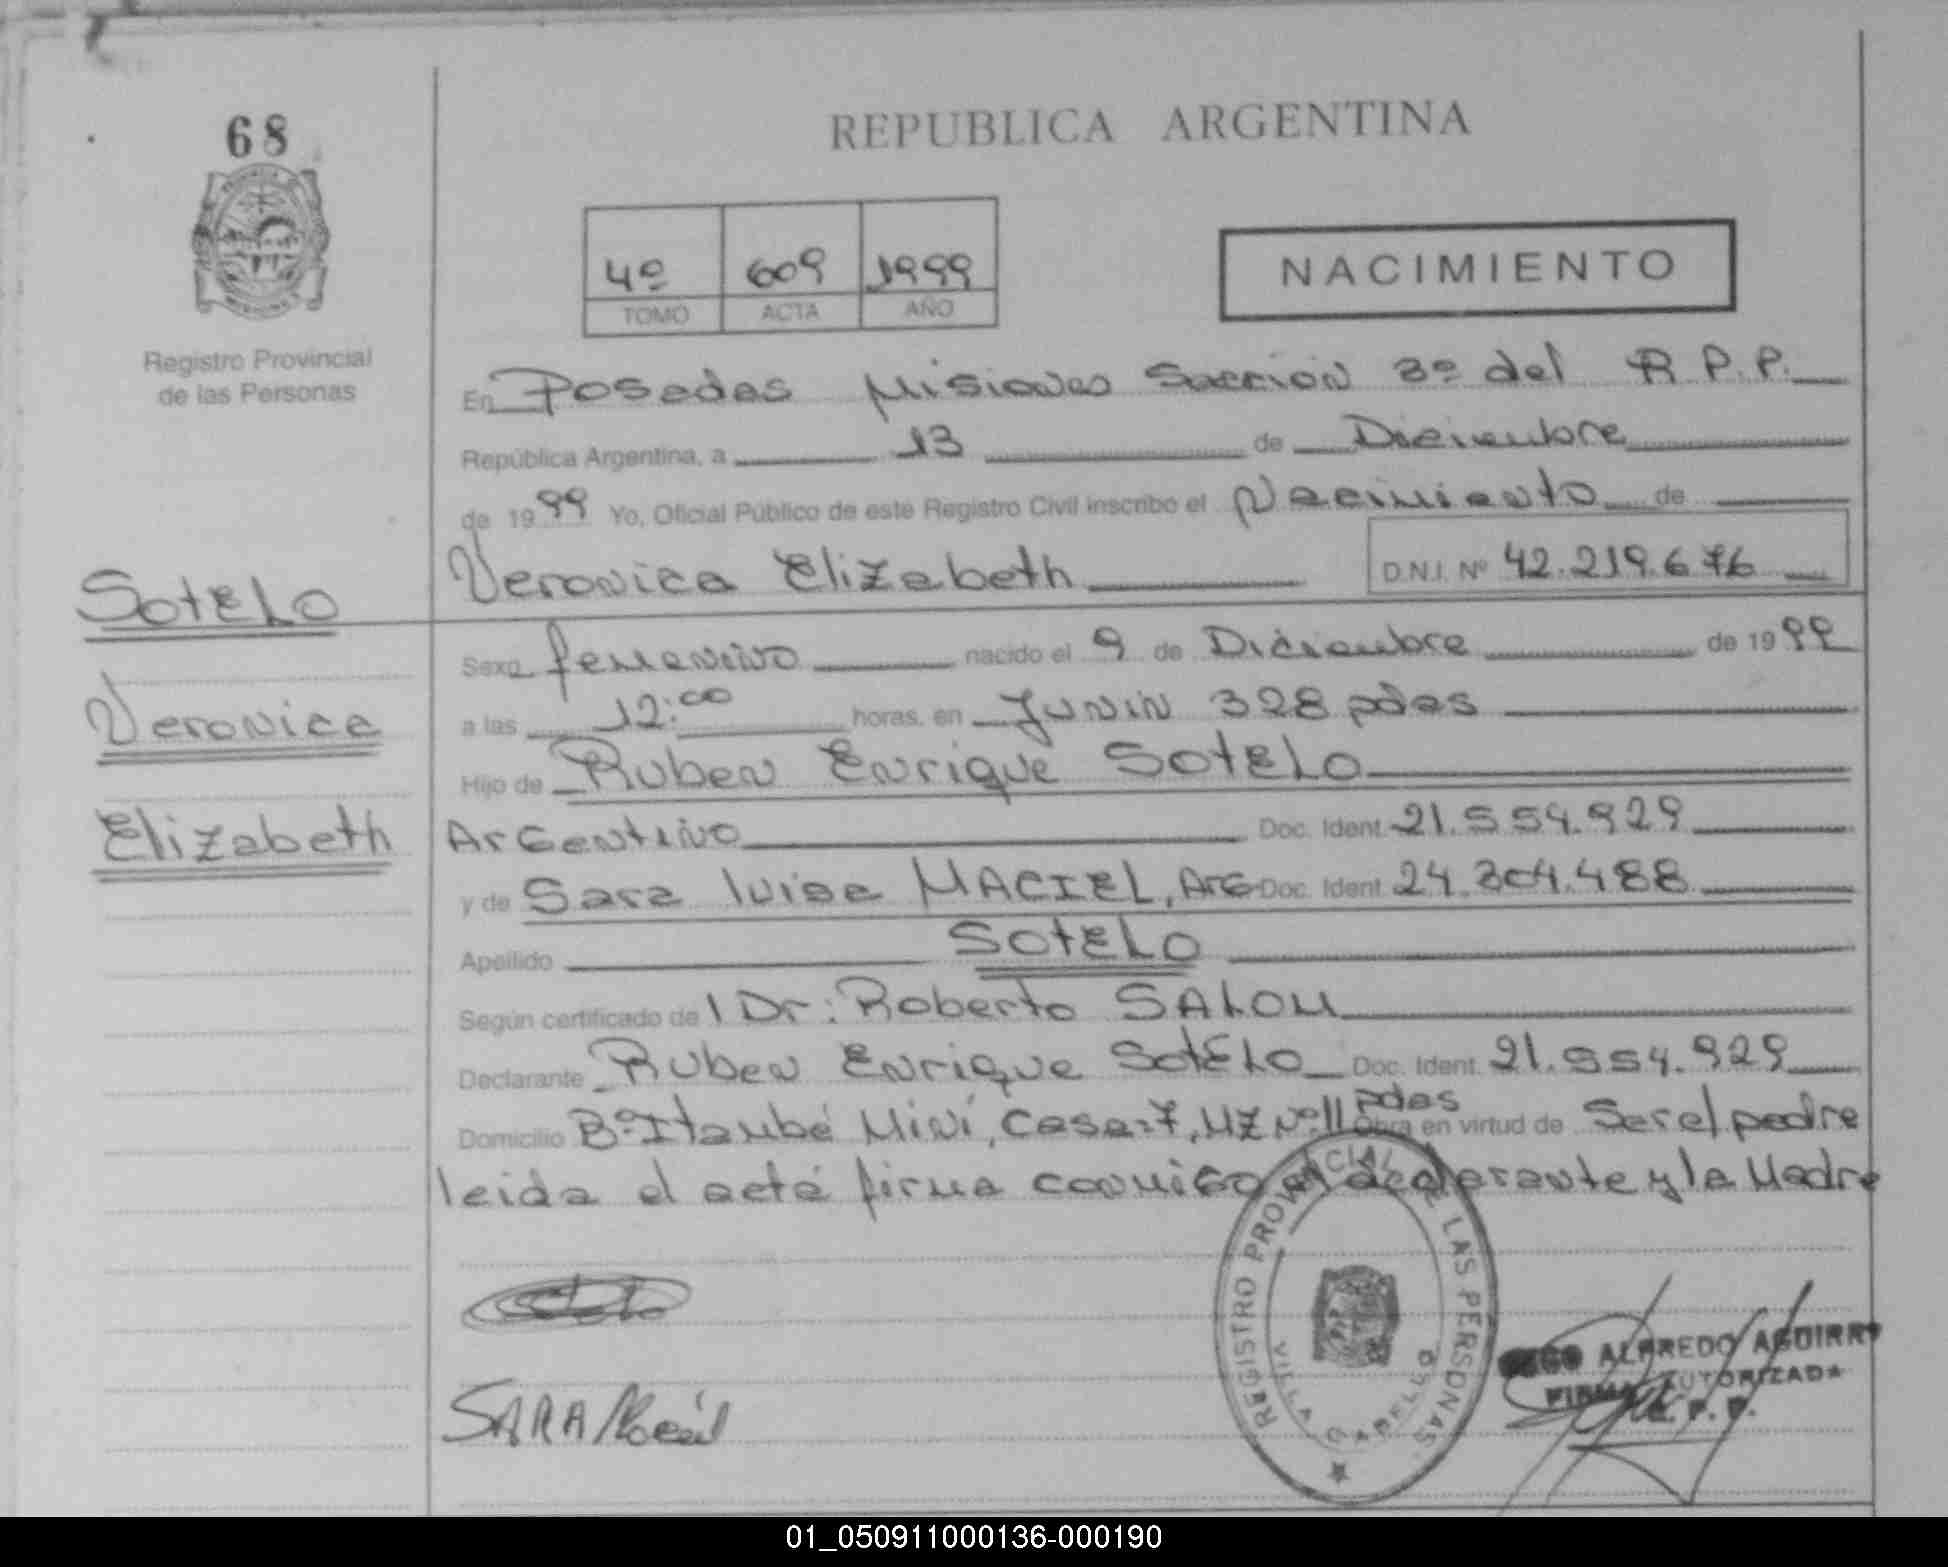 68
REPUBLICA ARGENTINA
4º 609 1999
TOMO ACTA AÑO
NACIMIENTO
Registro Provincial
de las Personas
En Posadas Misiones Sección 3º del R.P.P.
República Argentina, a 13 de Diciembre
de 1999 Yo, Oficial Público de este Registro Civil inscribo el Nacimiento de
Veronica Elizabeth D.N.I. Nº 42.219.676
SotELo
Veronica
Elizabeth
Sexo femenino nacido el 9 de Diciembre de 1999
a las 12:00 horas, en Junin 328 pdas
Hijo de Ruben Enrique SotELo
Argentino Doc. Ident. 21.554.929
y de Sara luisa MACIEL, Arg Doc. Ident. 24.304.488
Apellido SotELo
Según certificado de l Dr: Roberto SALOM
Declarante Ruben Enrique SotELo Doc. Ident. 21.554.929
Domicilio Bº Itaembé Miní, Casa:7, MZ Nº 11 pdas Obra en virtud de Ser el padre
leida el acta firma conmigo el declarante y la Madre
SARA Maciel
REGISTRO PROVINCIAL DE LAS PERSONAS
VILLA CABELLO
ALFREDO AGUIRRE
FIRMA AUTORIZADA
R. P. P.
01_050911000136-000190